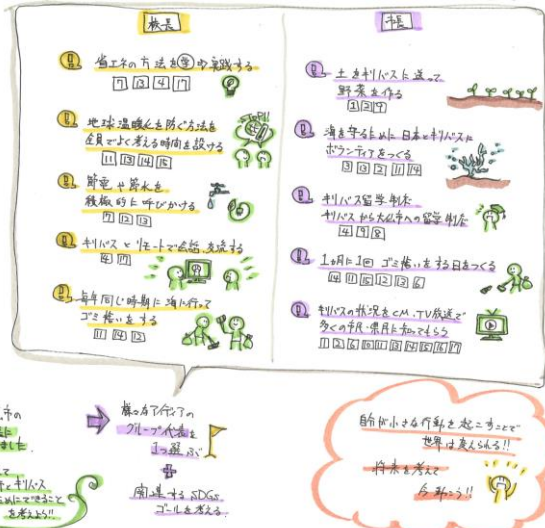 校長
省エネの方法を学ⓤや実践する
7 13 4 17
地球温暖化を防ぐ方法を
全員でよく考える時間を設ける
11 13 14 15
節電や節水を
積極的に呼びかける
7 12 13
キリバスとリモートで会話、交流する
4 17
毎年同じ時期に海に行って
ゴミ拾いをする
11 14 13
市長
土をキリバスに送って
野菜を作る
1 2 9
海を守るために日本とキリバスに
ボランティアをつくる
3 13 2 11 14
キリバス留学制度
キリバスから大仙市への留学制度
4 9 8
1ヵ月に1回 ゴミ拾いをする日をつくる
14 11 15 12 13 6
キリバスの状況をCM、TV放送で
多くの市民・県民に知ってもらう
1 2 6 10 11 13 14 15 16 17
市の
ました
して
とキリバス
ためにできること
を考えよう!!
様々なアイディアの
グループ代表を
1つ選ぶ
+
関連するSDGs
ゴールを考える
自分が小さな行動を起こすことで
世界は変えられる!!
将来を考えて
行動しよう!!